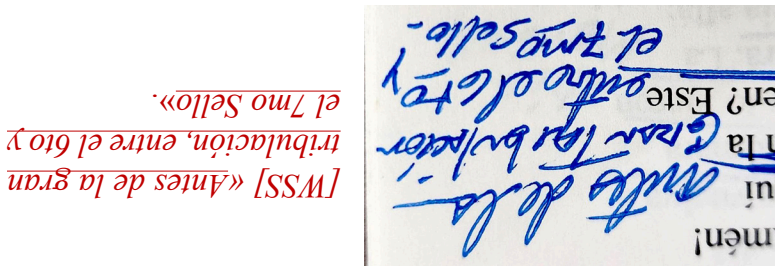 mén!
uí
n la
en? Este
Antes de la
Gran Tribulación
entre el 6to y
el 7mo Sello.
[WSS] «Antes de la gran
tribulación, entre el 6to y
el 7mo Sello».